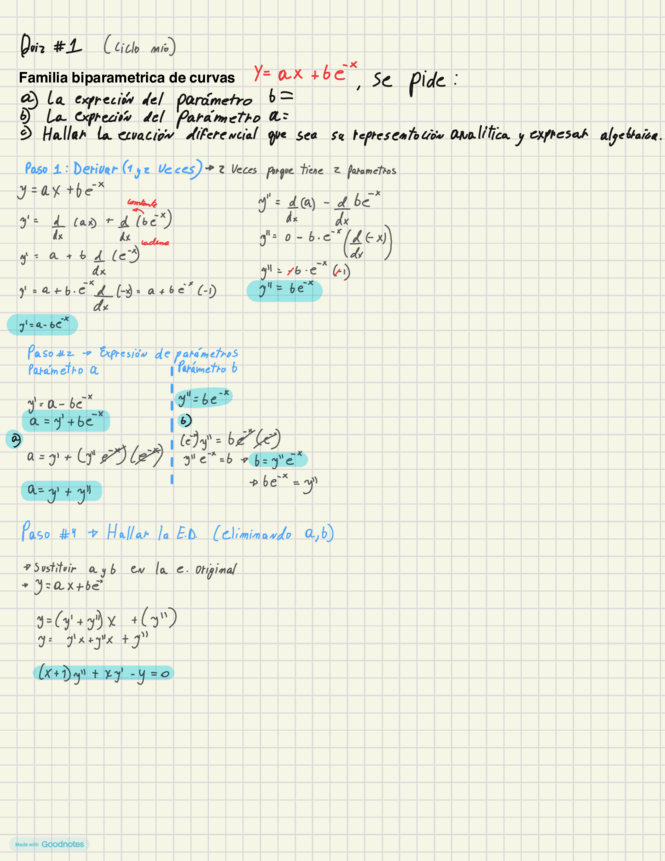 Quiz #1 (Ciclo mio)
Familia biparametrica de curvas y = ax + be⁻ˣ, se pide:
a) La expreción del parámetro b =
b) La expreción del parámetro a =
c) Hallar la ecuación diferencial que sea su representación analítica y expresar algebraica.
Paso 1: Derivar (1 y 2 veces) → 2 veces porque tiene 2 parametros
y = ax + be⁻ˣ
constante
y' = d/dx (ax) + d/dx (be⁻ˣ)
cadena
y' = a + b d/dx (e⁻ˣ)
y' = a + b · e⁻ˣ d/dx (-x) = a + be⁻ˣ (-1)
y' = a - be⁻ˣ
y'' = d/dx (a) - d/dx be⁻ˣ
y'' = 0 - b · e⁻ˣ (d/dx (-x))
y'' = -b · e⁻ˣ (-1)
y'' = be⁻ˣ
Paso #2 → Expresión de parámetros
Parámetro a
y' = a - be⁻ˣ
a = y' + be⁻ˣ
a)
a = y' + (y'' e⁻ˣ)(e⁻ˣ)
a = y' + y''
Parámetro b
y'' = be⁻ˣ
b)
(e⁻ˣ) y'' = b e⁻ˣ (e⁻ˣ)
y'' e⁻ˣ = b → b = y'' e⁻ˣ
→ be⁻ˣ = y''
Paso #4 → Hallar la E.D (eliminando a,b)
→ Sustituir a y b en la e. original
→ y = ax + be⁻ˣ
y = (y' + y'') x + (y'')
y = y'x + y''x + y''
(x+1)y'' + xy' - y = 0
Made with Goodnotes